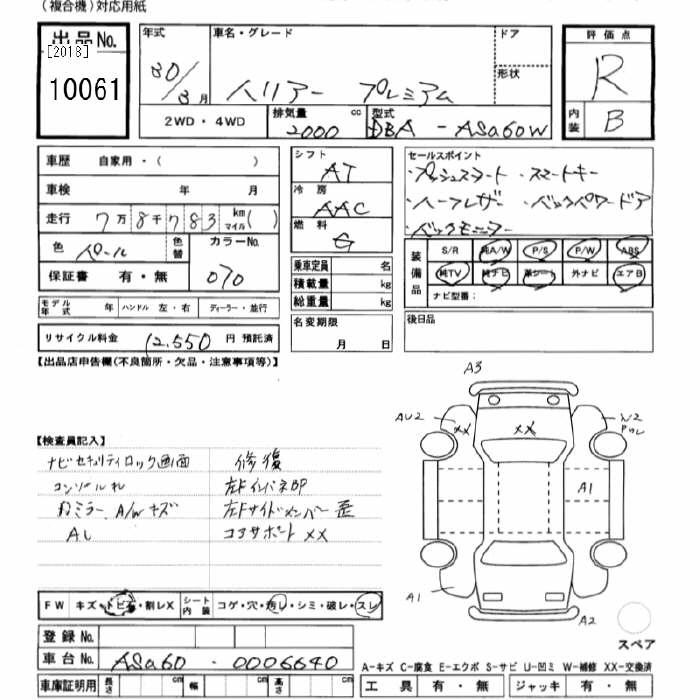 (複合機)対応用紙
出品No.
[2018]
10061
年式 30/8月
車名・グレード
ハリアー プレミアム
ドア
形状
評価点
R
内装 B
2WD・4WD
排気量 2000 cc
型式 DBA - ASU60W
車歴 自家用・( )
車検 年 月
走行 7万8千783 km マイル( )
色 パール
色替
カラーNo. 070
保証書 有・無
モデル年式 年 ハンドル 左・右 ディーラー・並行
リサイクル料金 12,550 円 預託済
シフト AT
冷房 AAC
燃料 G
乗車定員 名
積載量 kg
総重量 kg
名変期限
月 日
セールスポイント
・プッシュスタート ・スマートキー
・ハーフレザー ・バックパワードア
・バックモニター
装備品
S/R 純A/W P/S P/W ABS
純TV 純ナビ 革シート 外ナビ エアB
ナビ型番:
後日品
【出品店申告欄(不良箇所・欠品・注意事項等)】
【検査員記入】
ナビセキュリティロック画面
コンソール
ミラー、A/Wキズ
修復
左Fインパネ部
左Fサイドメンバー歪
コアサポート XX
A3
AU2
XX
XX
W2
A1
A1
A2
スペア
FW キズ・トビ石・割レX シート内装 コゲ・穴・汚レ・シミ・破レ・スレ
登録No.
車台No. ASU60 - 0006640
車庫証明用 長さ 幅 高さ
A-キズ C-腐食 E-エクボ S-サビ U-凹ミ W-補修 XX-交換済
工具 有・無 ジャッキ 有・無